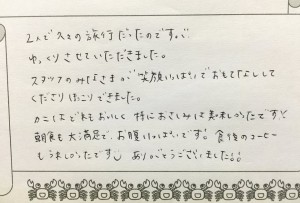 2人で久々の旅行だったのですが、
ゆっくりさせていただきました。
スタッフのみなさまが笑顔いっぱいでおもてなしして
くださりほっこりできました。
カニはどれもおいしく 特におさしみは美味しかったです
朝食も大満足で、お腹いっぱいです。食後のコーヒー
もうれしかったです ありがとうございました!!